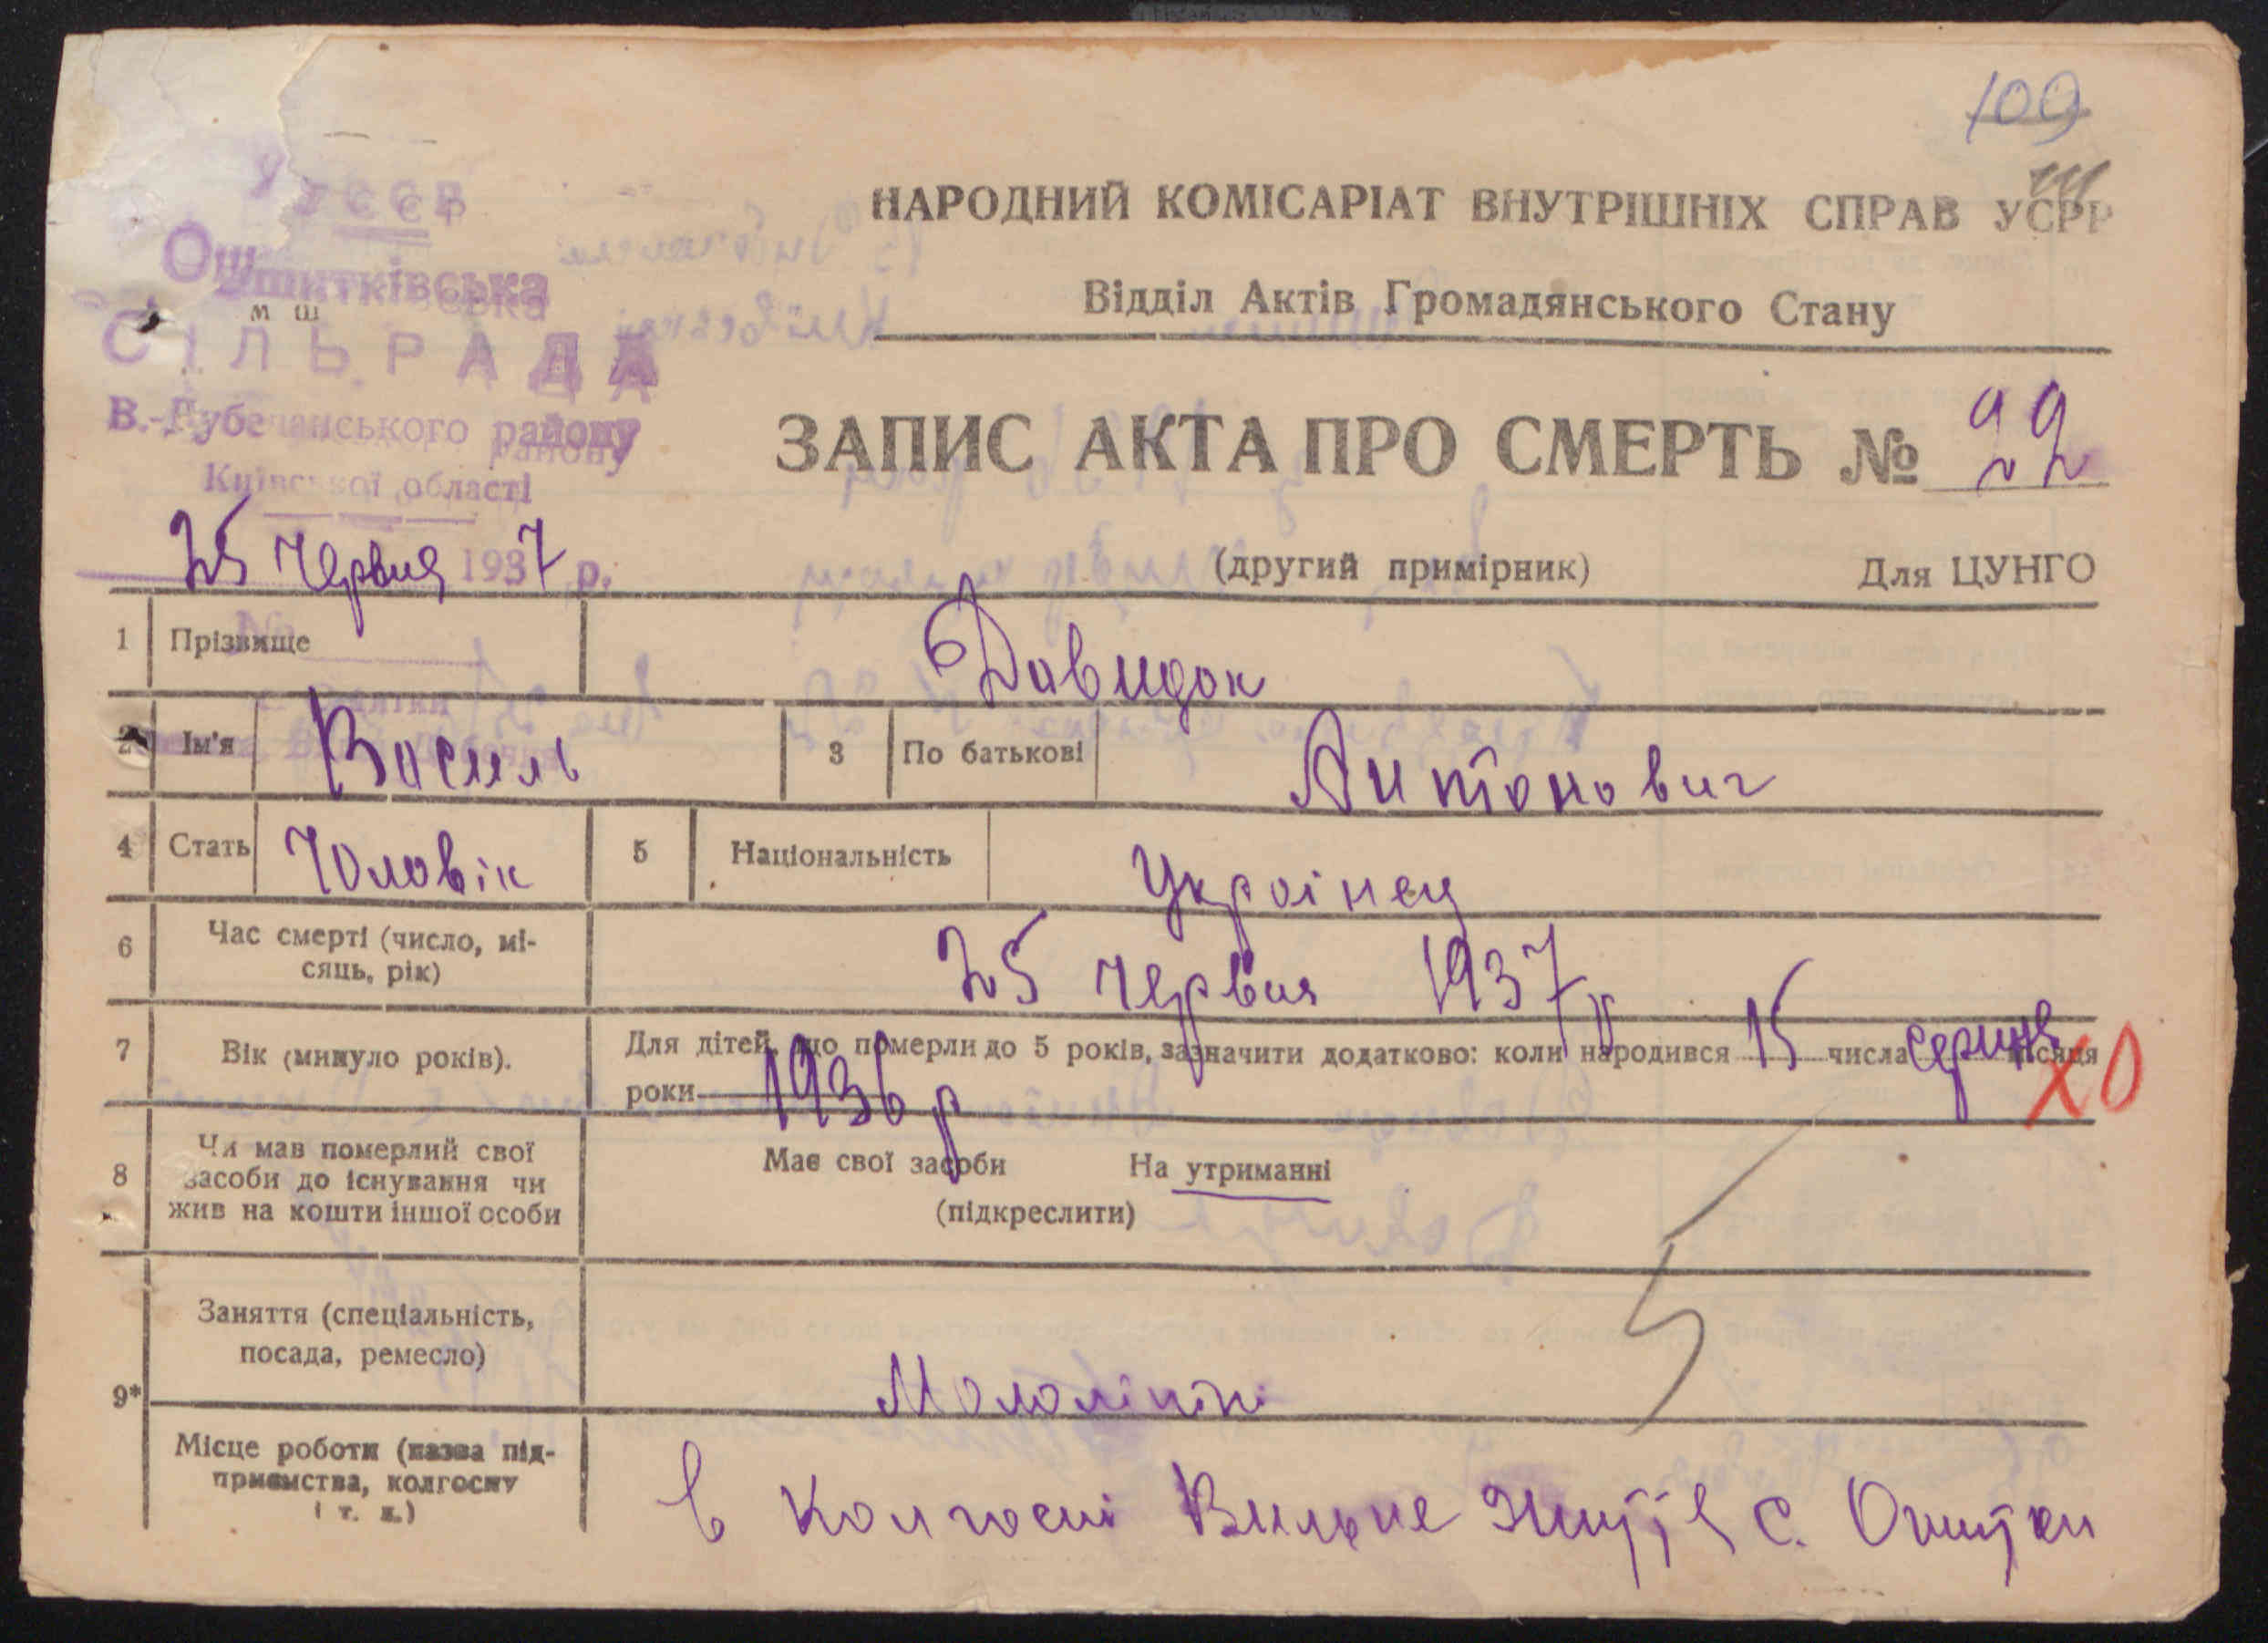 109
НАРОДНИЙ КОМІСАРІАТ ВНУТРІШНІХ СПРАВ УСРР
Відділ Актів Громадянського Стану
УССР
Ошитківська
м ш
СІЛЬРАДА
В.-Дубечанського району
Київської області
ЗАПИС АКТА ПРО СМЕРТЬ № 22
25 червня 1937 р.
(другий примірник) Для ЦУНГО
1 Прізвище Давидок
2 Ім'я Василь 3 По батькові Антонович
4 Стать Чоловік 5 Національність Українец
6 Час смерті (число, мі-
сяць, рік) 25 червня 1937 р
7 Вік (минуло років). Для дітей, що померли до 5 років, зазначити додатково: коли народився 15 числа серпня місяця
роки 1936 р
ХО
8 Чи мав померлий свої
засоби до існування чи
жив на кошти іншої особи
Має свої засоби На утриманні
(підкреслити)
9* Заняття (спеціальність,
посада, ремесло)
Малолітні
Місце роботи (назва під-
приємства, колгоспу
і т. и.)
в колгоспі Вильне Життя с. Ошитки